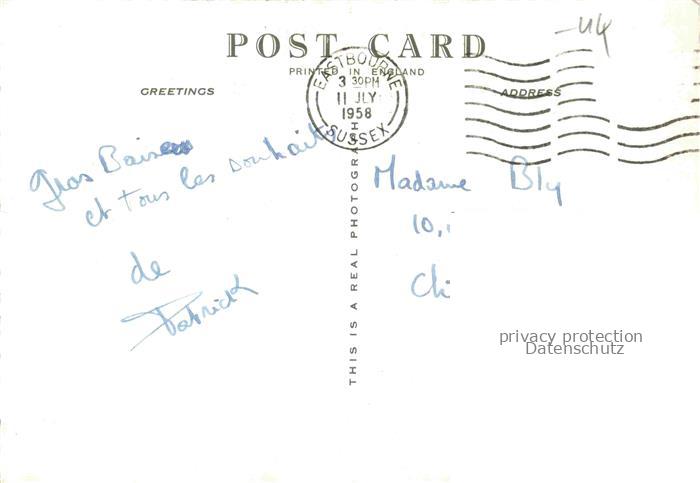 -44
POST CARD
PRINTED IN ENGLAND
GREETINGS
ADDRESS
EASTBOURNE
3 30PM
11 JLY
1958
SUSSEX
Gros Baisers
et tous les souhaits
de
Patrick
THIS IS A REAL PHOTOGRAPH
Madame Bly
10,
Cli
privacy protection
Datenschutz